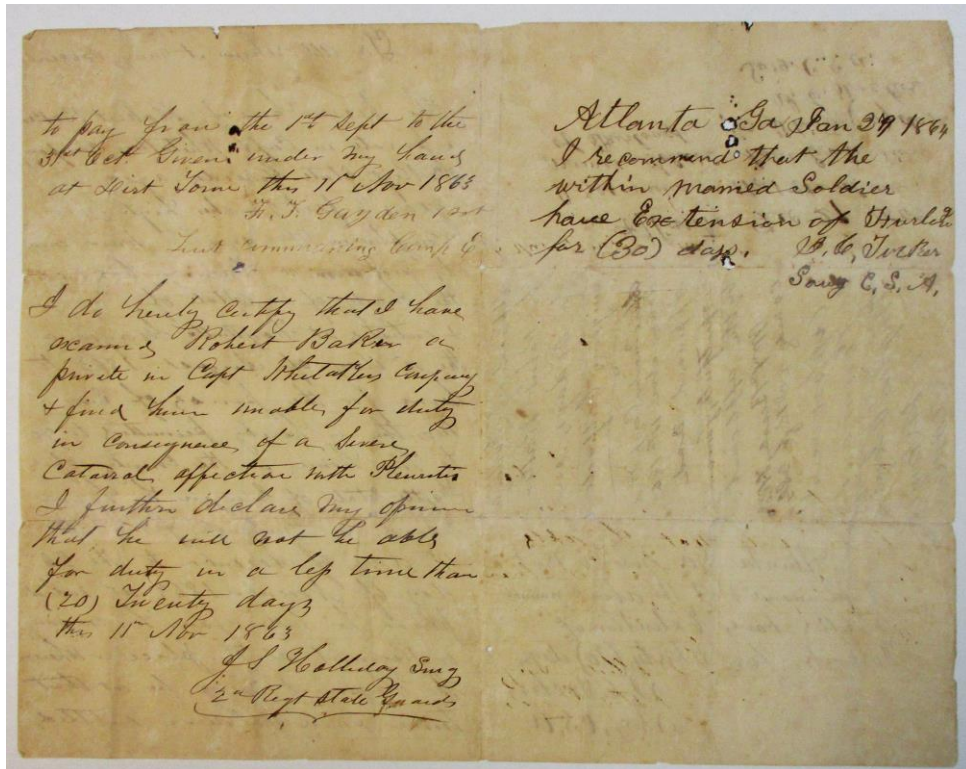 to pay from the 1st Sept to the
31st Oct Given under my hand
at Dirt Town this 11 Nov 1863
F. F. Gayden 1st
Lieut commanding Comp
I do hereby certify that I have
examined Robert Baker a
private in Capt Whitakers Company
& find him unable for duty
in consequence of a severe
Catarral affection with Pleuritis
I further declare my opinion
that he will not be able
for duty in a less time than
(20) Twenty days
this 11 Nov 1863
J S Holliday Surg
2nd Regt State Guards
Atlanta Ga Jan 29 1864
I recommend that the
within named Soldier
have Extension of
for (30) days. Tucker
Surg C. S. A.